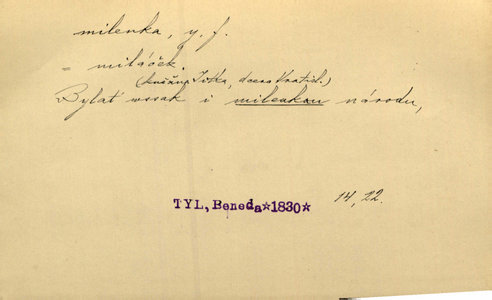 milenka, y. f.
= miláček.
(kněžna Jitka, dcera Vratisl.)
Bylať wssak i milenkau národu,
TYL, Beneda*1830*
14, 22.